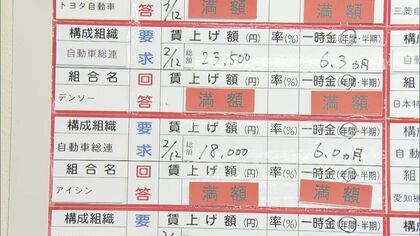 トヨタ自動車 答 1/12
構成組織 要 賃上げ額(円) 率(%) 一時金(年間・半期)
自動車総連 求 2/12 総額 23,500 6.3ヵ月
組合名 回 満額 満額
デンソー 答
構成組織 要 賃上げ額(円) 率(%) 一時金(年間・半期)
自動車総連 求 2/12 総額 18,000 6.0ヵ月
組合名 回 満額 満額
アイシン 答
構成組織 要 賃上げ額(円) 率(%) 一時金(年間・半期)
三菱自
日本特
愛知機